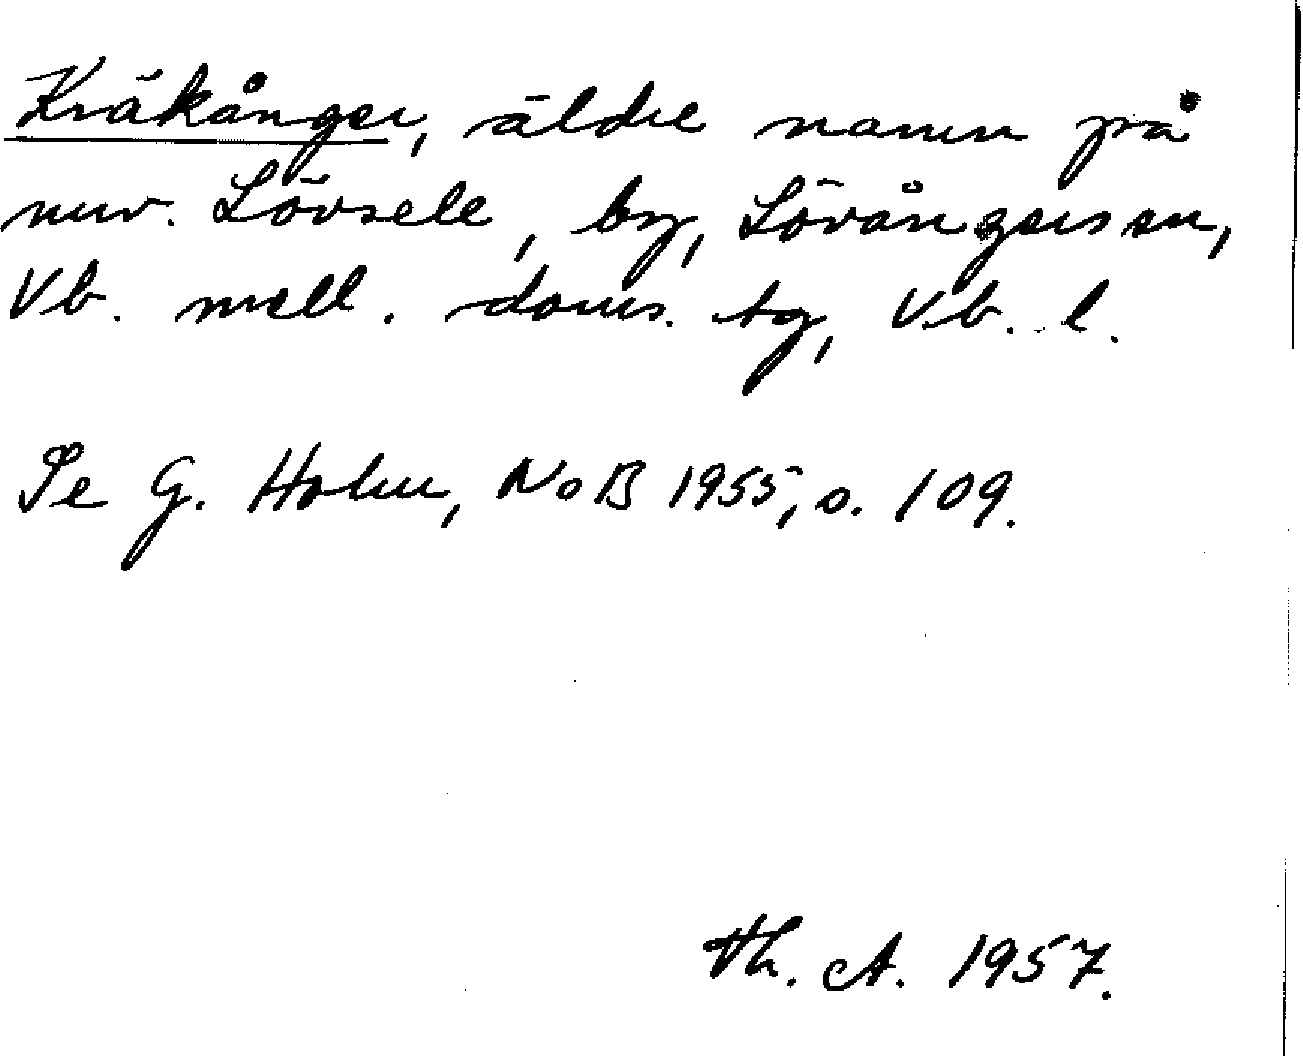 Kräkånger, äldre namn på
nuv. Lövsele, by, Lövångers sn,
Vb. mell. doms. tg, Vb. l.
Se G. Holm, NoB 1955, s. 109.
Th. A. 1957.